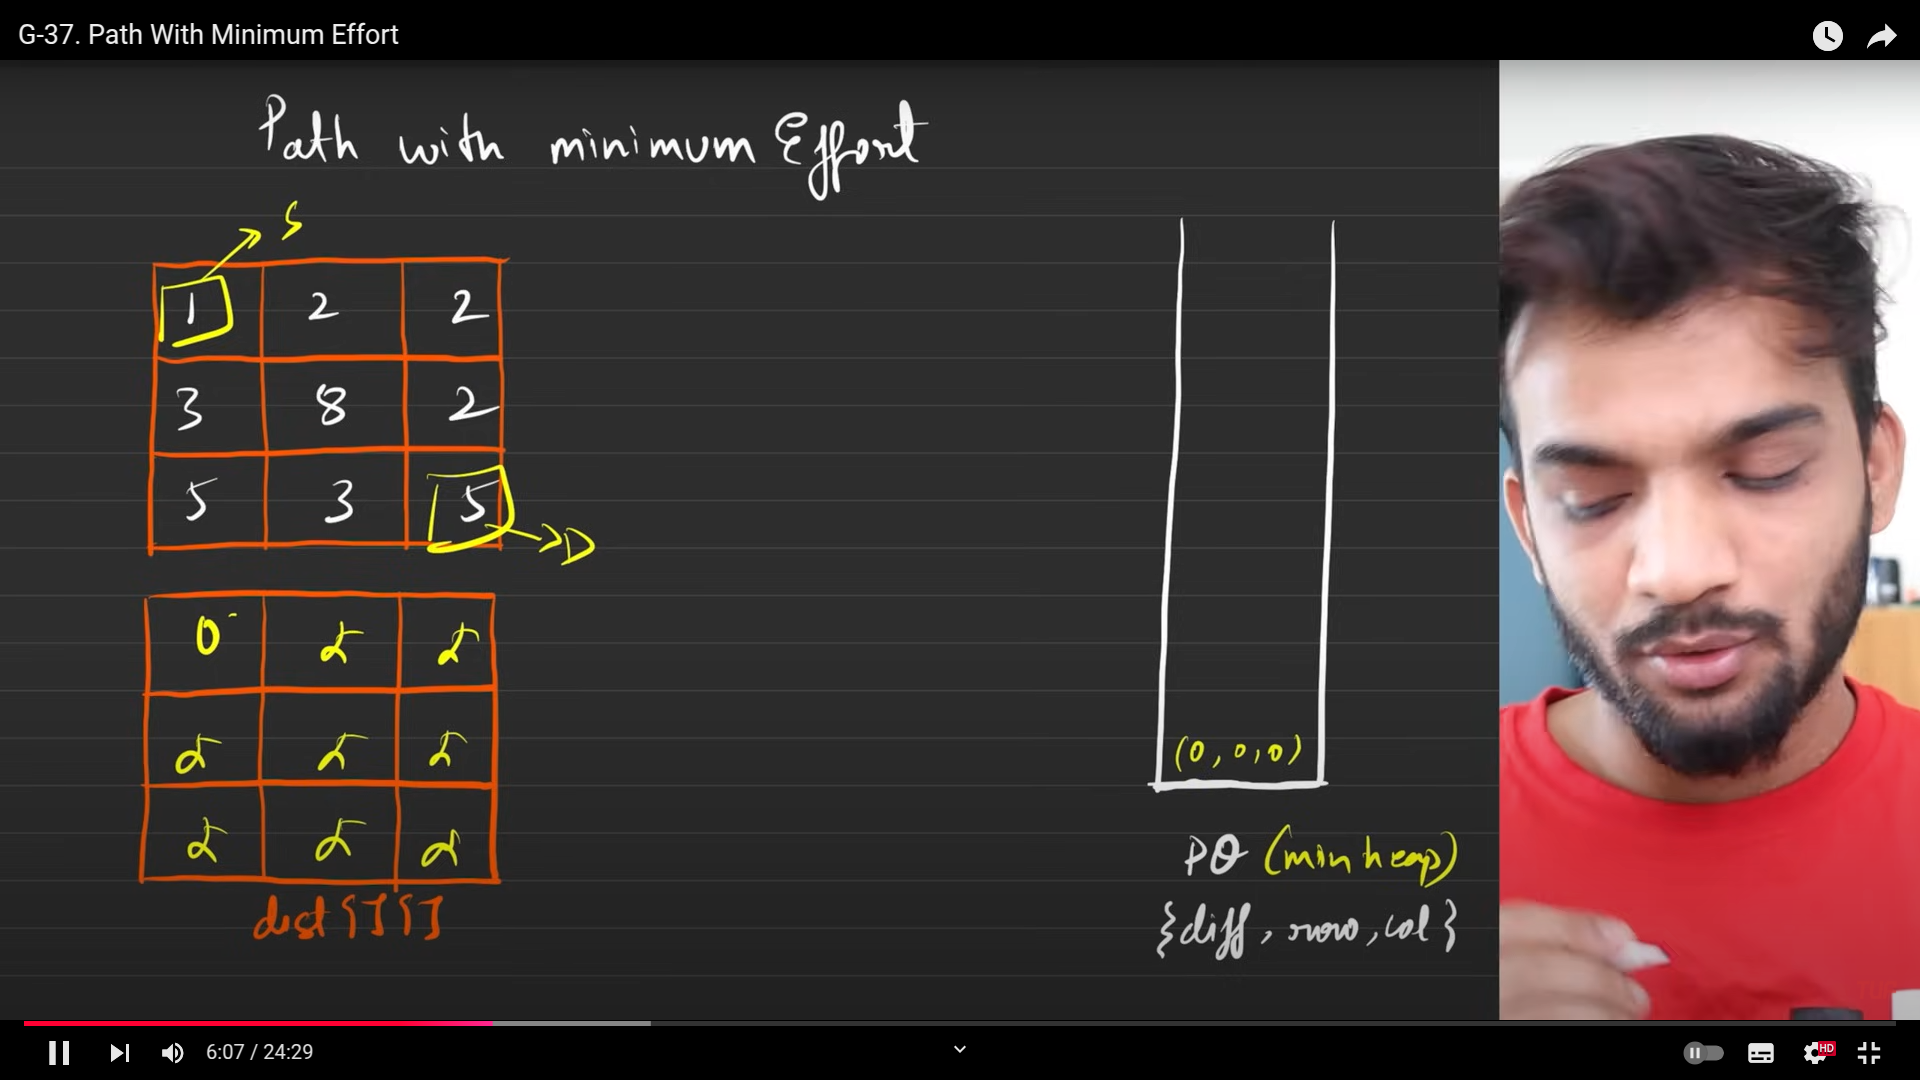 G-37. Path With Minimum Effort
Path with minimum Effort
S
1 2 2
3 8 2
5 3 5
D
0 ∝ ∝
∝ ∝ ∝
∝ ∝ ∝
dist[][]
(0,0,0)
PQ (min heap)
{diff, row, col}
6:07 / 24:29
HD